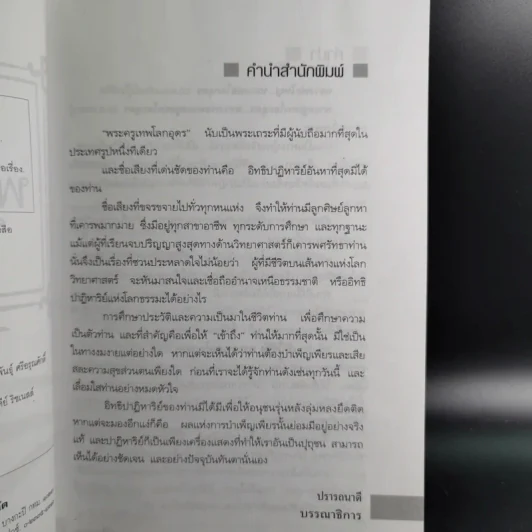 คำนำสำนักพิมพ์
"พระครูเทพโลกอุดร" นับเป็นพระเถระที่มีผู้นับถือมากที่สุดใน
ประเทศรูปหนึ่งทีเดียว
และชื่อเสียงที่เด่นชัดของท่านคือ อิทธิปาฏิหาริย์อันหาที่สุดมิได้
ของท่าน
ชื่อเสียงที่ขจรขจายไปทั่วทุกหนแห่ง จึงทำให้ท่านมีลูกศิษย์ลูกหา
ที่เคารพมากมาย ซึ่งมีอยู่ทุกสาขาอาชีพ ทุกระดับการศึกษา และทุกฐานะ
แม้แต่ผู้ที่เรียนจบปริญญาสูงสุดทางด้านวิทยาศาสตร์ก็เคารพศรัทธาท่าน
นั่นจึงเป็นเรื่องที่ชวนประหลาดใจไม่น้อยว่า ผู้ที่มีชีวิตบนเส้นทางแห่งโลก
วิทยาศาสตร์ จะหันมาสนใจและเชื่อถืออำนาจเหนือธรรมชาติ หรืออิทธิ
ปาฏิหาริย์แห่งโลกธรรมะได้อย่างไร
การศึกษาประวัติและความเป็นมาในชีวิตท่าน เพื่อศึกษาความ
เป็นตัวท่าน และที่สำคัญคือเพื่อให้ "เข้าถึง" ท่านให้มากที่สุดนั้น มิใช่เป็น
ในทางงมงายแต่อย่างใด หากแต่จะเห็นได้ว่าท่านต้องบำเพ็ญเพียรและเสีย
สละความสุขส่วนตนเพียงใด ก่อนที่เราจะได้รู้จักท่านดังเช่นทุกวันนี้ และ
เลื่อมใสท่านอย่างหมดหัวใจ
อิทธิปาฏิหาริย์ของท่านมิได้มีเพื่อให้อนุชนรุ่นหลังลุ่มหลงยึดติด
หากแต่จะมองอีกแง่ก็คือ ผลแห่งการบำเพ็ญเพียรนั้นย่อมมีอยู่อย่างจริง
แท้ และปาฏิหาริย์ก็เป็นเพียงเครื่องแสดงที่ทำให้เราอันเป็นปุถุชน สามารถ
เห็นได้อย่างชัดเจน และอย่างปัจจุบันทันตานั่นเอง
ปรารถนาดี
บรรณาธิการ